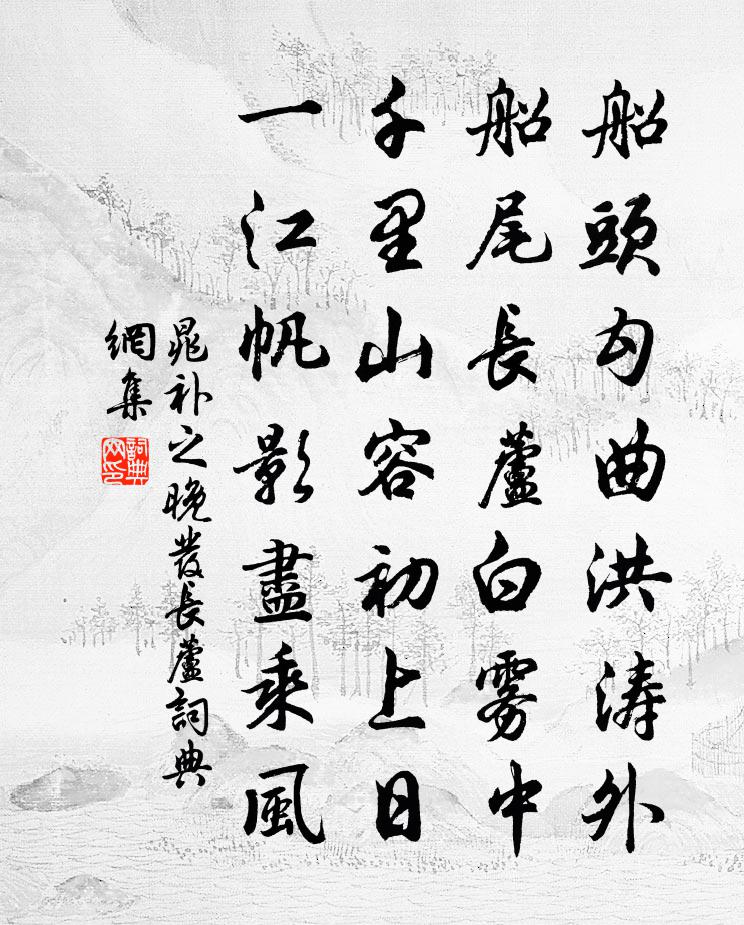 船頭勾曲洪涛外
船尾長蘆白雾中
千里山容初上日
一江帆影盡乘風
晁补之晚发長蘆詞典
網集
詞典網印